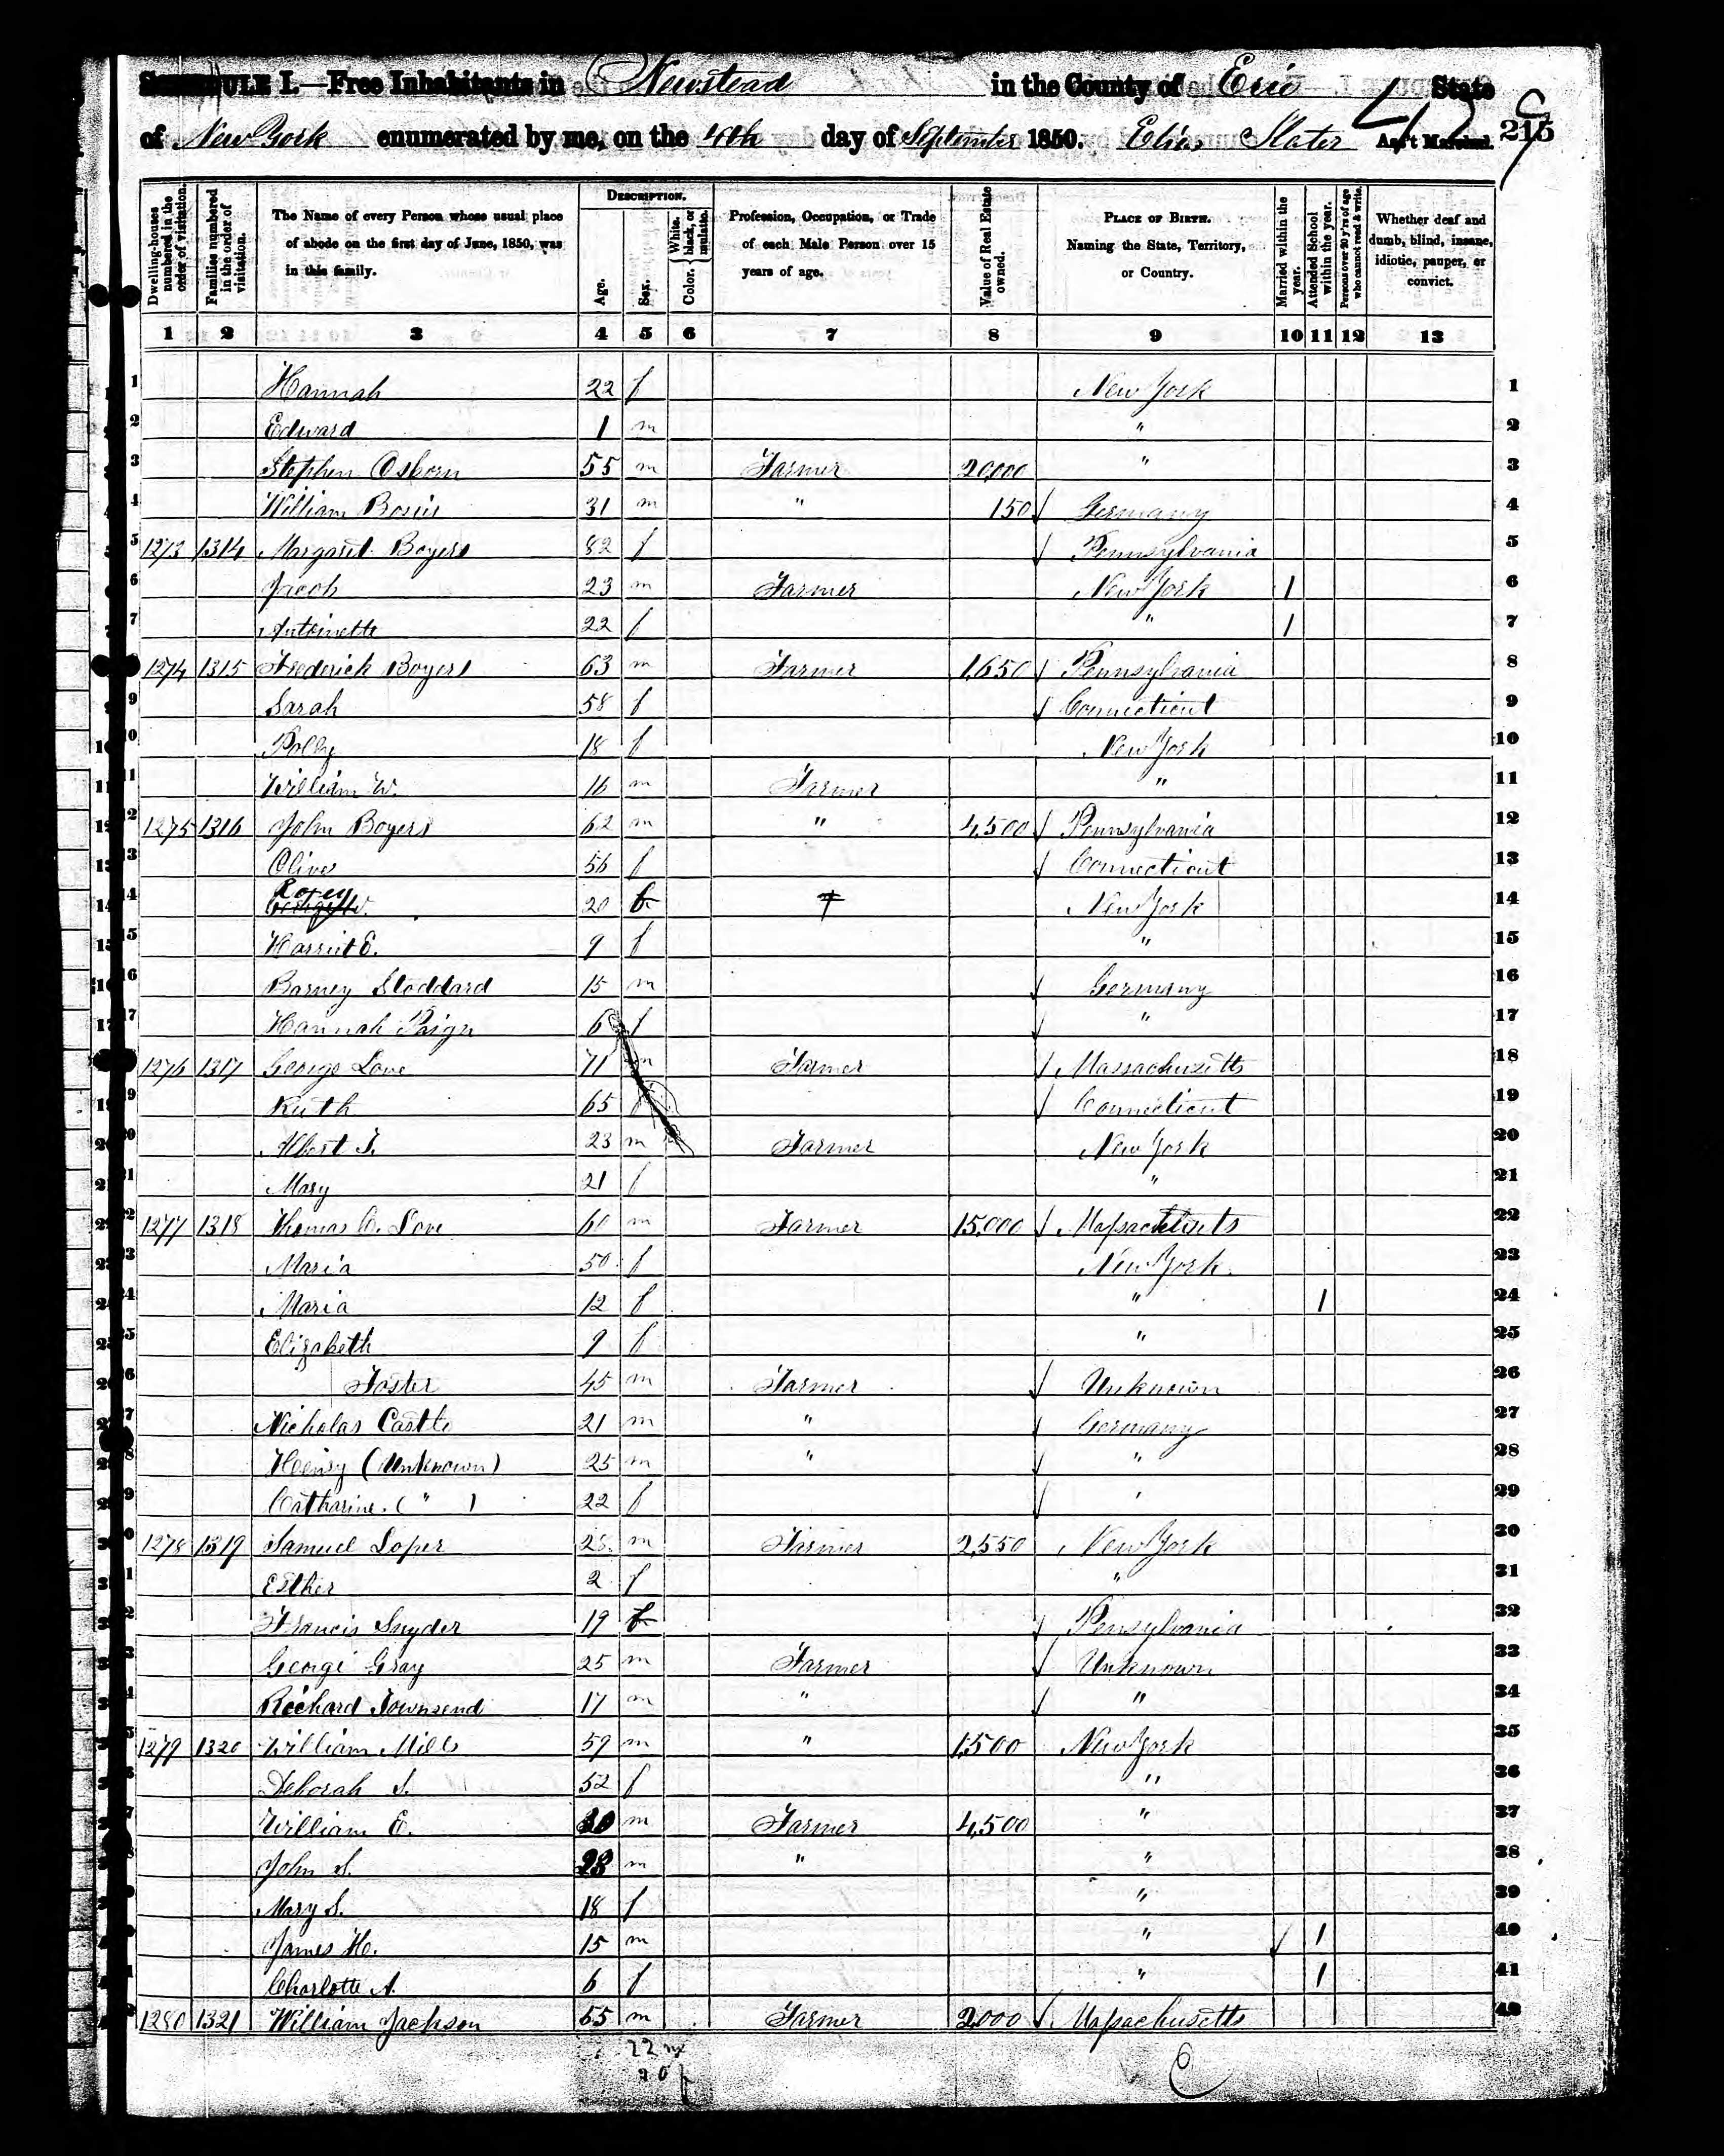 SCHEDULE I.—Free Inhabitants in Newstead in the County of Erie State
of New York enumerated by me, on the 4th day of September 1850. Elias Slater Ass't Marshal. 215
Dwelling-houses numbered in the order of visitation.
Families numbered in the order of visitation.
The Name of every Person whose usual place of abode on the first day of June, 1850, was in this family.
DESCRIPTION.
Age.
Sex.
Color. { White, black, or mulatto.
Profession, Occupation, or Trade of each Male Person over 15 years of age.
Value of Real Estate owned.
PLACE OF BIRTH. Naming the State, Territory, or Country.
Married within the year.
Attended School within the year.
Persons over 20 y'rs of age who cannot read & write.
Whether deaf and dumb, blind, insane, idiotic, pauper, or convict.
1 2 3 4 5 6 7 8 9 10 11 12 13
1 Hannah 22 f New York 1
2 Edward 1 m " 2
3 Stephen Osborn 55 m Farmer 20,000 " 3
4 William Bosius 31 m " 150 Germany 4
5 1273 1314 Margaret Boyers 82 f Pennsylvania 5
6 Jacob 23 m Farmer New York 1 6
7 Antoinette 22 f " 1 7
1274 1315 Frederick Boyers 63 m Farmer 1,650 Pennsylvania 8
9 Sarah 58 f Connecticut 9
10 Polly 18 f New York 10
11 William W. 16 m Farmer " 11
12 1275 1316 John Boyers 62 m " 4,500 Pennsylvania 12
13 Olive 56 f Connecticut 13
14 Roxey George W. 20 f New York 14
15 Harriet E. 9 f " 15
16 Barney Stoddard 15 m Germany 16
17 Hannah Paign 6 f " 17
1276 1317 George Love 71 m Farmer Massachusetts 18
19 Ruth 65 f Connecticut 19
20 Albert T. 23 m Farmer New York 20
21 Mary 21 f " 21
22 1277 1318 Thomas C. Love 60 m Farmer 15,000 Massachusetts 22
23 Maria 50 f New York 23
24 Maria 12 f " 1 24
25 Elizabeth 9 f " 25
26 Foster 45 m Farmer Unknown 26
27 Nicholas Castle 21 m " Germany 27
28 Henry (Unknown) 25 m " " 28
29 Catharine (") 22 f " 29
30 1278 1319 Samuel Loper 28 m Farmer 2,550 New York 30
31 Esther 2 f " 31
32 Francis Snyder 19 f Pennsylvania 32
33 George Gray 25 m Farmer Unknown 33
34 Richard Townsend 17 m " " 34
35 1279 1320 William Mills 59 m " 1,500 New York 35
36 Deborah S. 52 f " 36
37 William E. 30 m Farmer 4,500 " 37
38 John S. 28 m " " 38
39 Mary S. 18 f " 39
40 James H. 15 m " 1 40
41 Charlotte A. 6 f " 1 41
1280 1321 William Jackson 55 m Farmer 2,000 Massachusetts 42
22 m
20 f